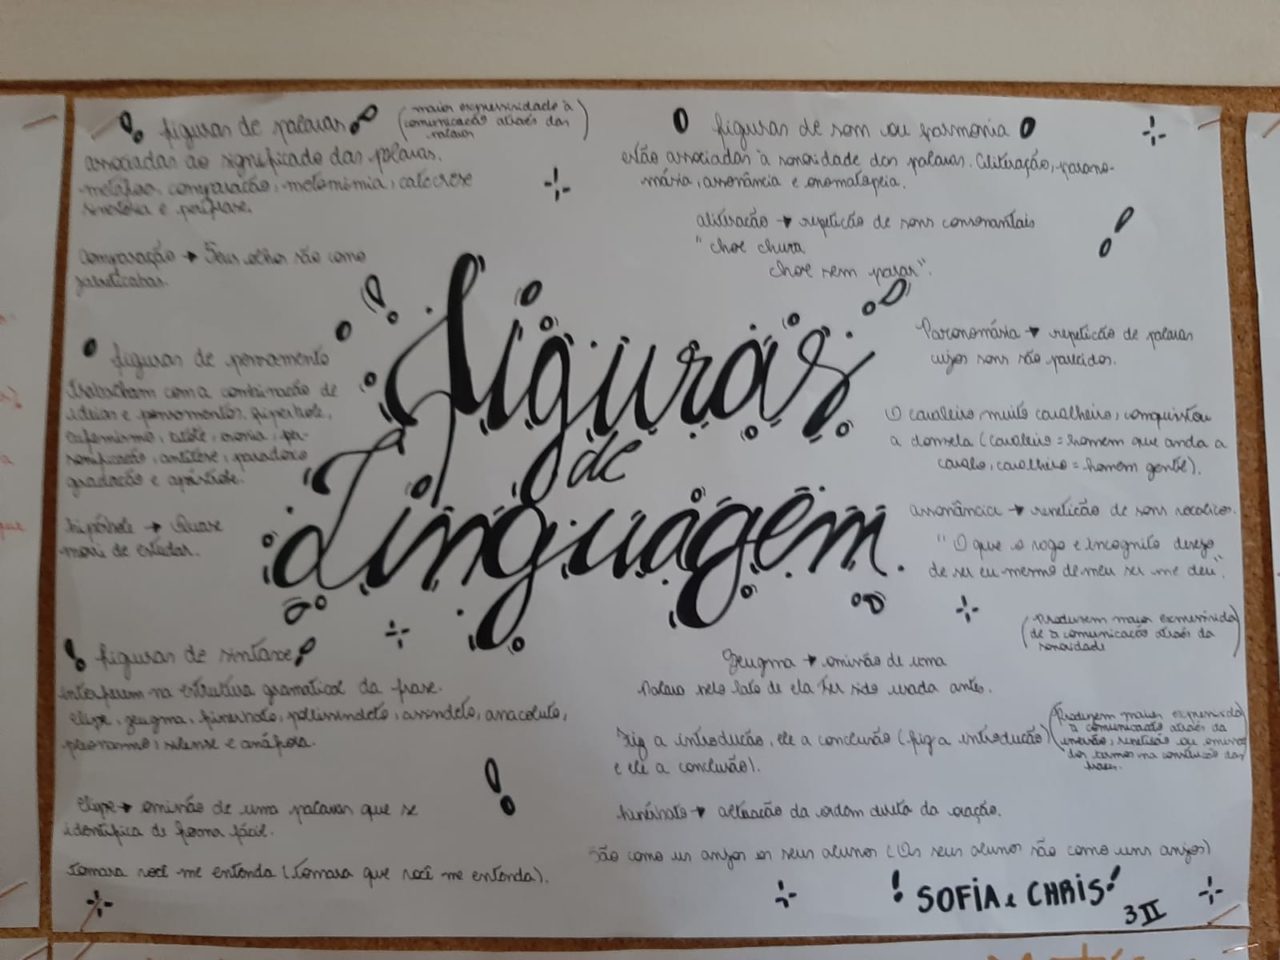 figuras de palavras
(maior expressividade à
comunicação através das
palavras)
associadas ao significado das palavras.
metáfora, comparação, metonímia, catacrese
sinestesia e perífrase.
comparação → Seus olhos são como
jabuticabas.
figuras de pensamento
Trabalham com a combinação de
ideias e pensamentos. hipérbole,
eufemismo, litote, ironia, per-
sonificação, antítese, paradoxo
gradação e apóstrofe.
hipérbole → Quase
morri de estudar.
Figuras
de
Linguagem.
figuras de som ou harmonia
estão associadas à sonoridade das palavras. Aliteração, parono-
másia, assonância e onomatopeia.
aliteração → repetição de sons consonantais
"chove chuva
chove sem parar".
Paronomásia → repetição de palavras
cujos sons são parecidos.
O cavaleiro, muito cavalheiro, conquistou
a donzela (cavaleiro = homem que anda a
cavalo, cavalheiro = homem gentil).
assonância → repetição de sons vocálicos.
"O que o vago e incógnito desejo
de ser eu mesmo de meu ser me deu".
(Produzem maior expressivida
de à comunicação através da
sonoridade)
figuras de sintaxe
interferem na estrutura gramatical da frase.
elipse, zeugma, hipérbato, polissíndeto, assíndeto, anacoluto,
pleonasmo, silepse e anáfora.
elipse → omissão de uma palavra que se
identifica de forma fácil.
Tomara você me entenda (Tomara que você me entenda).
Zeugma → omissão de uma
palavra pelo fato de ela ter sido usada antes.
Fiz a introdução, ele a conclusão (fiz a introdução
e ele a conclusão).
(Produzem maior expressivida
à comunicação através da
inversão, repetição ou omissão
dos termos na construção das
frases.
hipérbato → alteração da ordem direta da oração.
São como uns anjos os seus alunos (Os seus alunos são como uns anjos)
SOFIA e CHRIS!
3 II